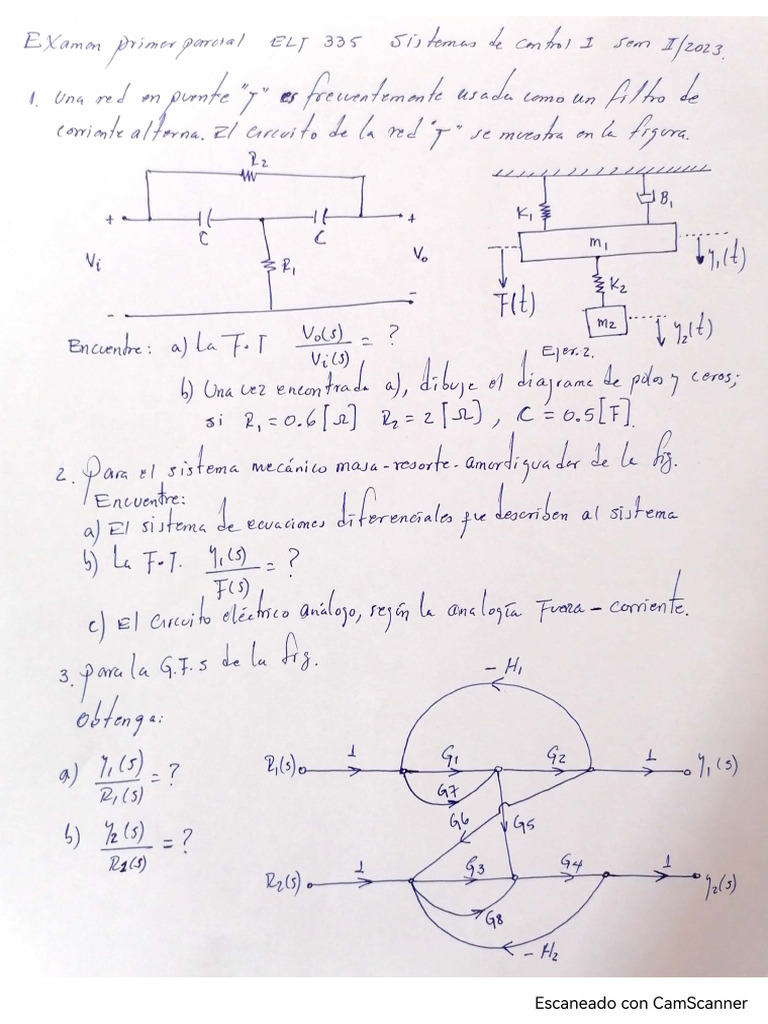 Examen primer parcial ELT 335 Sistemas de control I Sem I/2023.
1. Una red en puente "T" es frecuentemente usada como un filtro de
corriente alterna. El circuito de la red "T" se muestra en la figura.
R2
+ C C +
Vi R1 Vo
- -
K1 B1
m1
y1(t)
F(t) K2
m2 y2(t)
Ejer. 2.
Encuentre: a) La F.T Vo(s)/Vi(s) = ?
b) Una vez encontrada a), dibuje el diagrama de polos y ceros;
si R1 = 0.6 [Ω] R2 = 2 [Ω], C = 0.5 [F].
2. Para el sistema mecánico masa-resorte-amordiguador de la fig.
Encuentre:
a) El sistema de ecuaciones diferenciales que describen al sistema
b) La F.T. y1(s)/F(s) = ?
c) El circuito eléctrico análogo, según la analogía Fuerza - corriente.
3. para la G.F.S de la fig.
Obtenga:
a) y1(s)/R1(s) = ?
b) y2(s)/R2(s) = ?
-H1
R1(s) 1 G1 G2 1 y1(s)
G7
G6 G5
R2(s) 1 G3 G4 1 y2(s)
G8
-H2
Escaneado con CamScanner